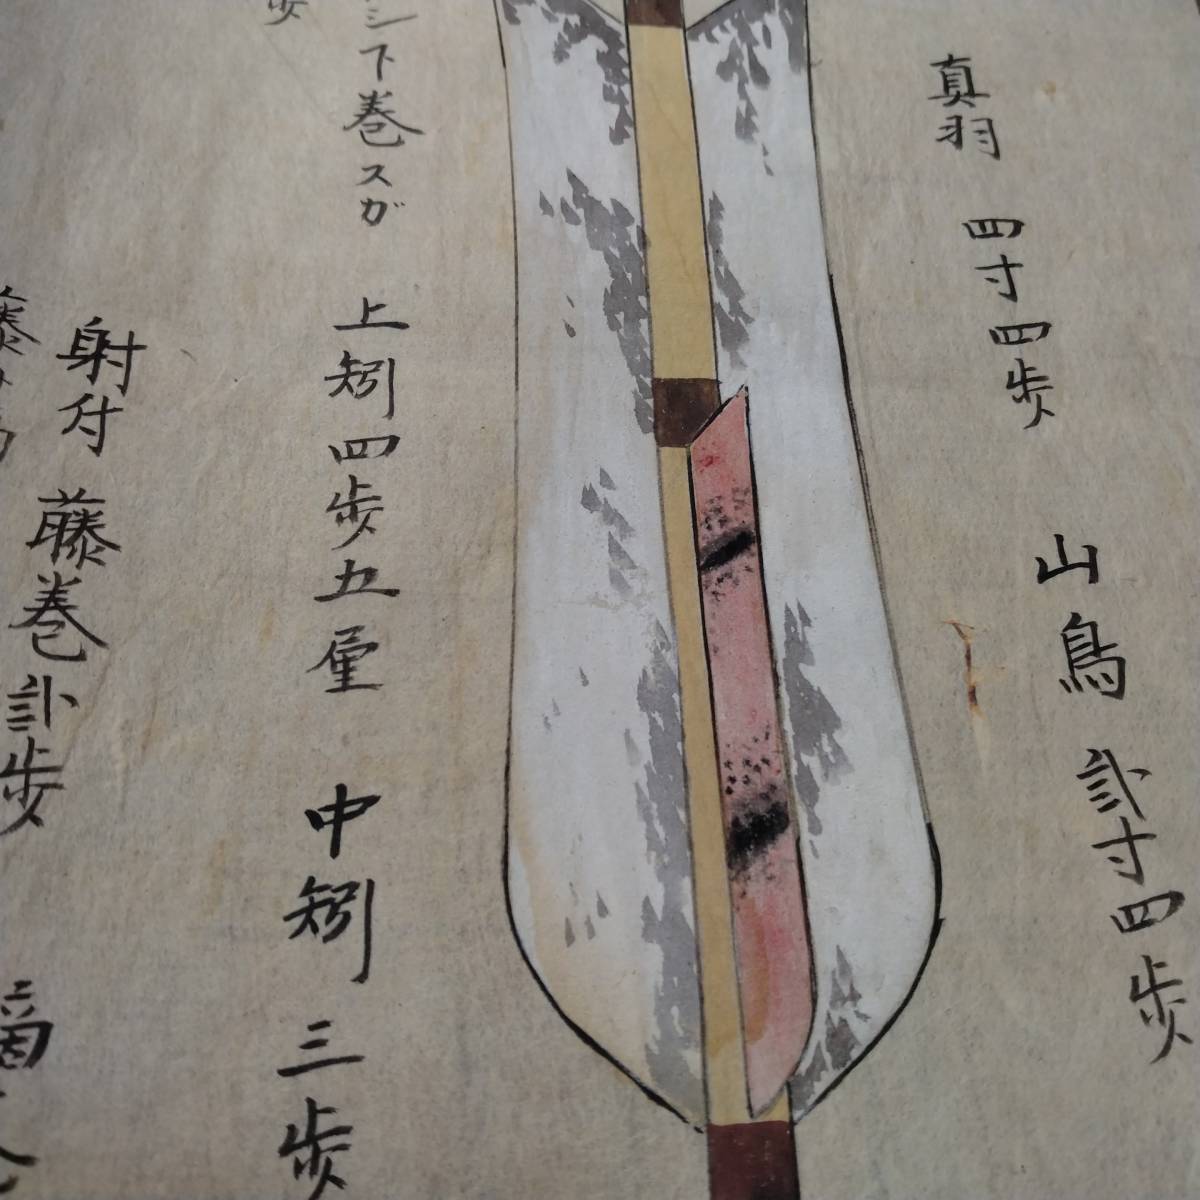 真羽 四寸四歩
山鳥 弐寸四歩
シ下巻スガ
上矧四歩五厘
中矧三歩
歩
射付 藤巻 弐歩
藤